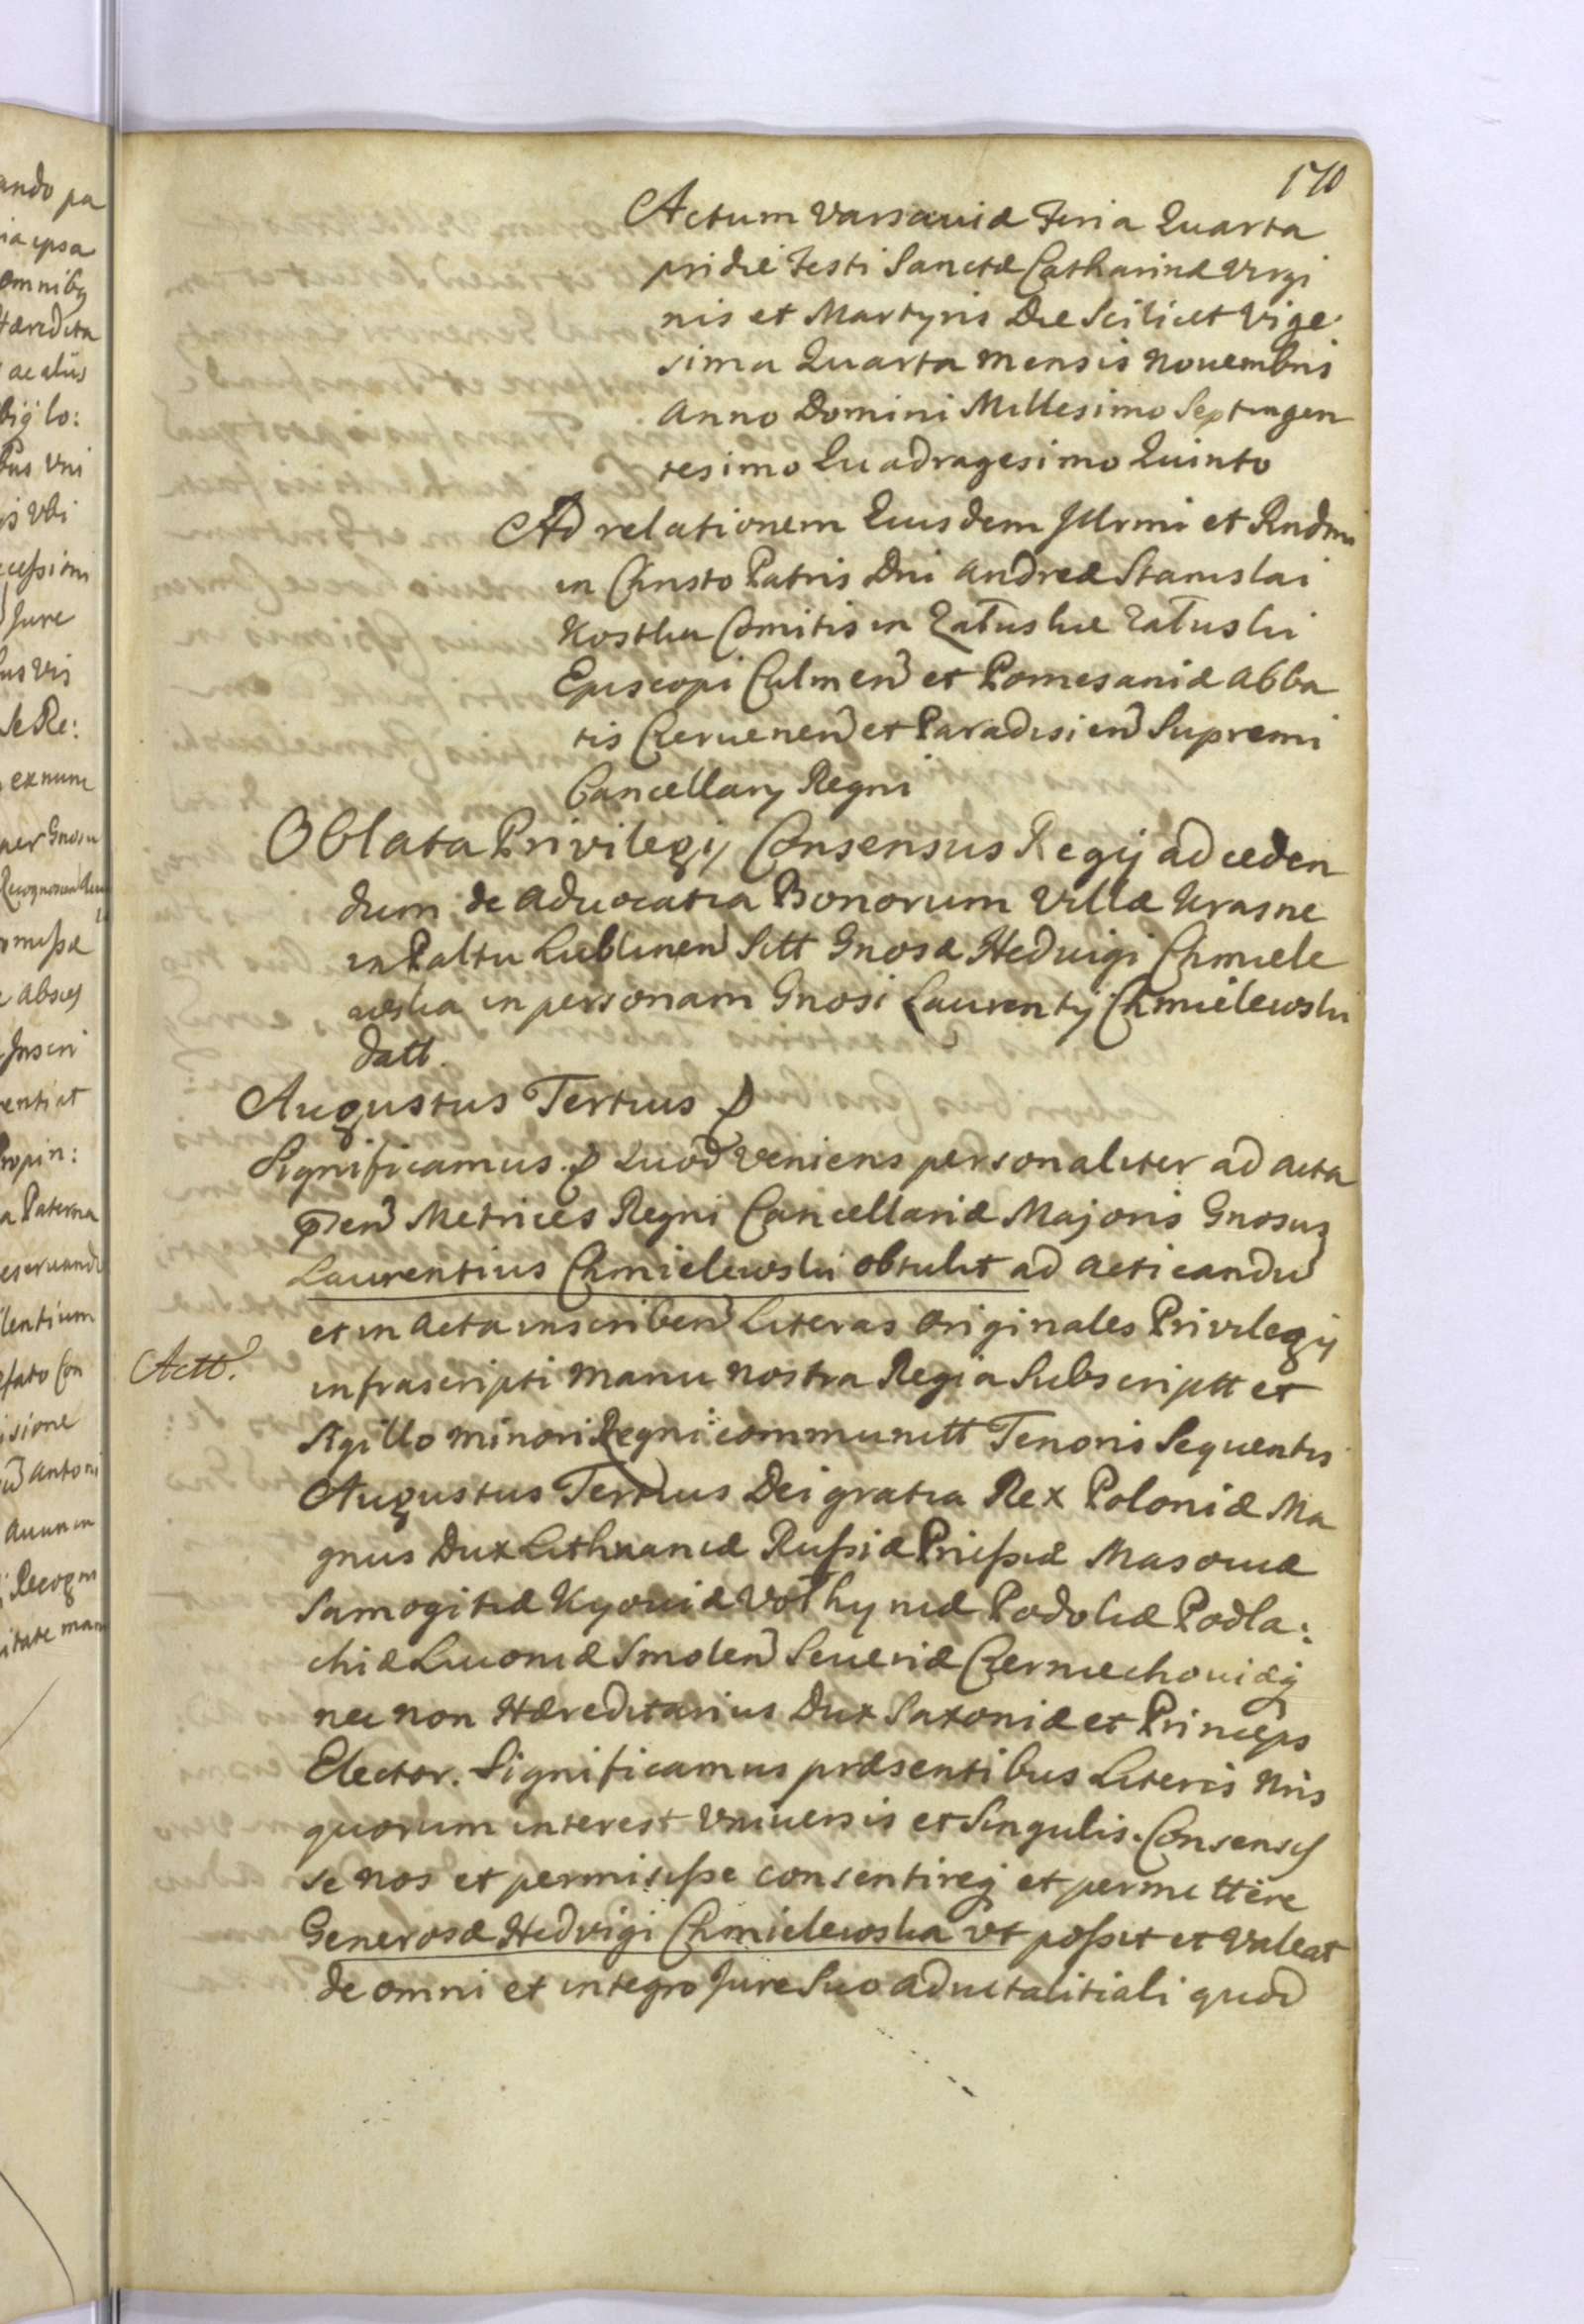 170
Actum Varsaviæ Feria Quarta
pridie Festi Sanctæ Catharinæ Virgi
nis et Martyris Die Scilicet Vige
sima Quarta Mensis Novembris
Anno Domini Millesimo Septingen
tesimo Quadragesimo Quinto
Ad relationem Eiusdem Illrmi et Rndmi
in Christo Patris Dni Andreæ Stanislai
Kostka Comitis in Załuskie Załuski
Episcopi Culmen et Pomesaniæ Abba
tis Czervenen et Paradisien Supremi
Cancellarij Regni
Oblata Privilegij Consensus Regij ad ceden
dum de Advocatia Bonorum Villæ Krasne
in Paltu Lublinen Sitt Gnosæ Hedvigi Chmiele
wska in personam Gnosi Laurentij Chmielewski
datt.
Augustus Tertius
Significamus. Quod veniens personaliter ad acta
pñen Metrices Regni Cancellariæ Majoris Gnosus
Laurentius Chmielewski obtulit ad acticandu
Actt.
et in Acta inscriben Literas Originales Privilegij
infrascripti Manu Nostra Regia Subscriptt et
Sigillo minori Regni communitt Tenoris Sequentis
Augustus Tertius Dei gratia Rex Poloniæ Ma
gnus Dux Lithuaniæ Russiæ Prussiæ Masoviæ
Samogitiæ Kyoviæ Volhyniæ Podoliæ Podla:
chiæ Livoniæ Smolen Severiæ Czerniechoviæq
nec non Hæreditarius Dux Saxoniæ et Princeps
Elector. Significamus præsentibus Literis Nris
quorum interest Universis et Singulis. Consensis
se nos et permisisse consentireq et permittere
Generosæ Hedvigi Chmielewska ut possit et valeat
de omni et integro Jure Suo advitalitiali quod